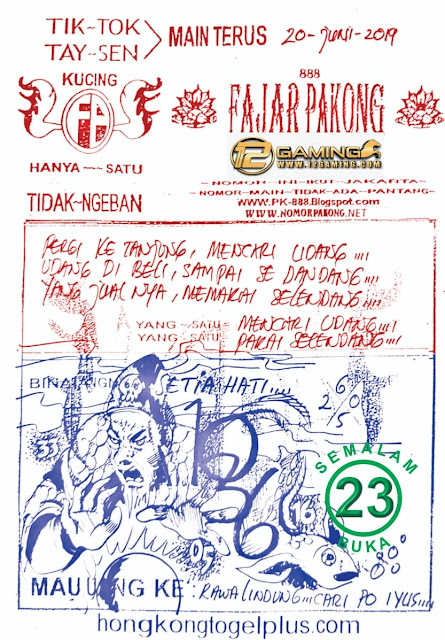 TIK~TOK
TAY~SEN
MAIN TERUS
20-JUNI-2019
KUCING
HANYA~~SATU
TIDAK~NGEBAN
888
FAJAR PAKONG
12GAMING
WWW.12GAMING.COM
~NOMOR~INI~IKUT~JAKARTA~
~NOMOR~MAIN~TIDAK~ADA~PANTANG~
WWW.PK-888.Blogspot.com
WWW.NOMORPAKONG.NET
PERGI KE TANJUNG, MENCARI UDANG
UDANG DI BELI, SAMPAI SE DANDANG
YANG JUAL NYA, MEMAKAI SELENDANG
YANG~SATU~ MENCARI UDANG
YANG~SATU~ PAKAI SELENDANG
ETIA HATI
6
2/0
5
1
6
16
05
SEMALAM
23
BUKA
MAU KE: RAWA LINDUNG CARI PO IYUS
hongkongtogelplus.com